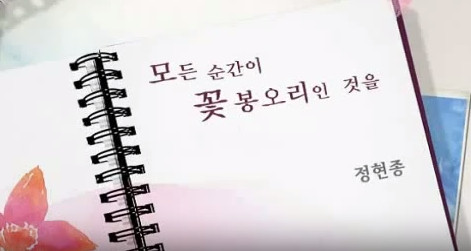 모든 순간이
꽃봉오리인 것을
정현종